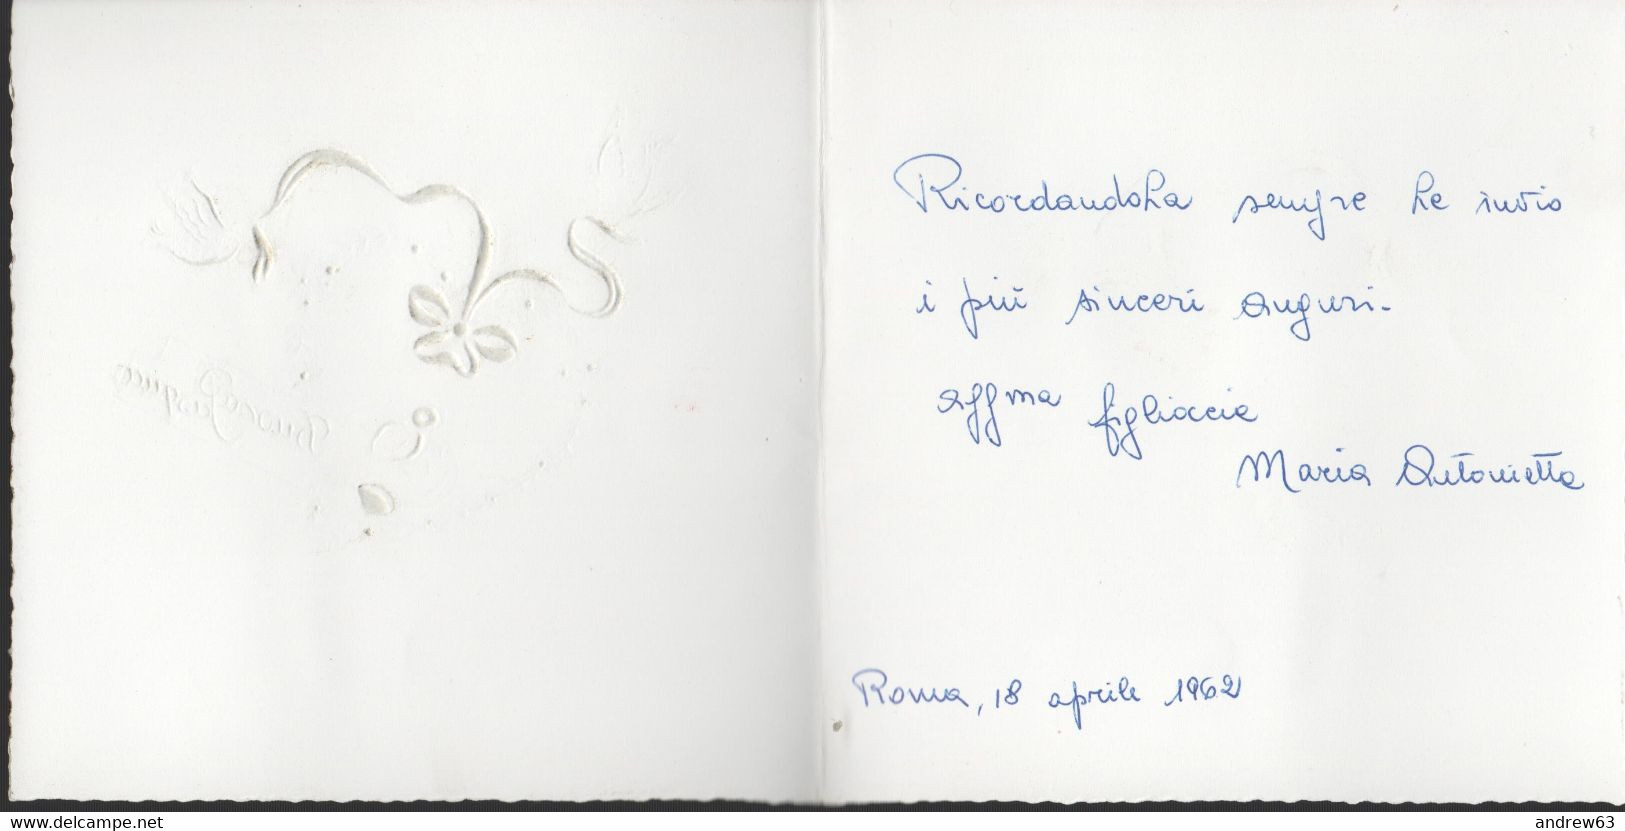 Buona Pasqua
RicordandoLa sempre Le invio
i più sinceri auguri.
Aff.ma figlioccia
Maria Antonietta
Roma, 18 aprile 1962
www.delcampe.net
andrew63